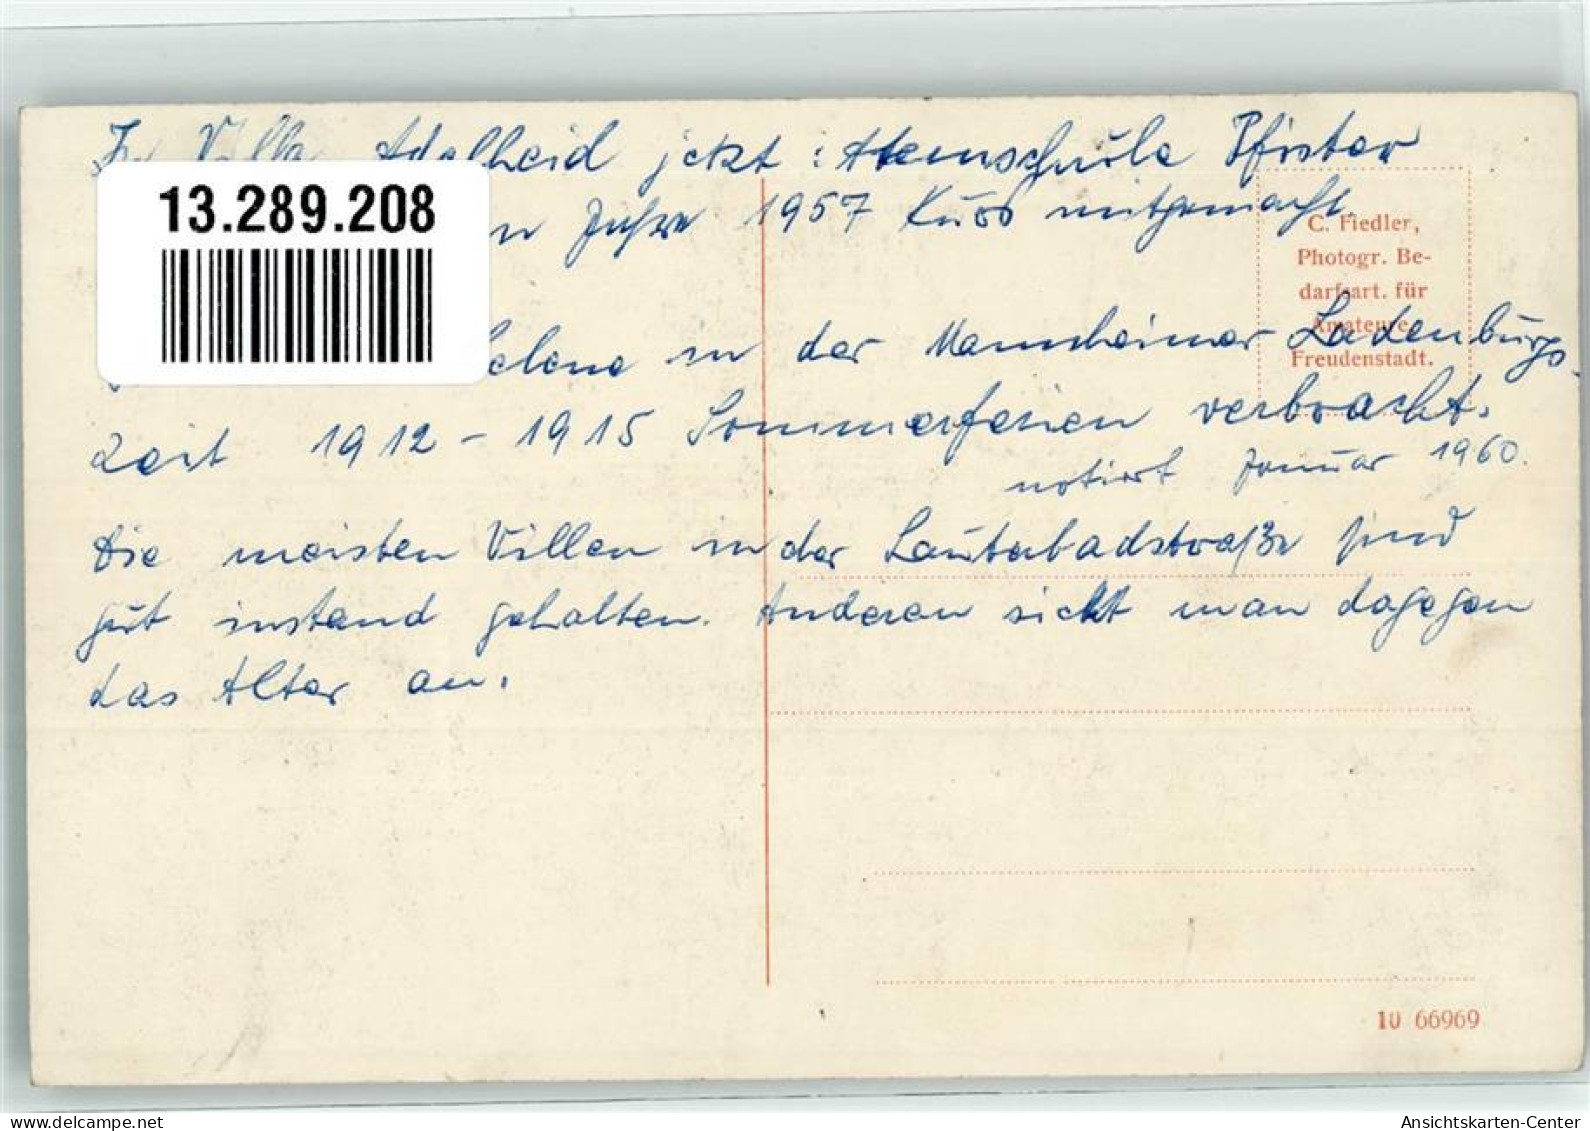 In Villa Adelheid jetzt: Atemschule Pfister
13.289.208
n Jahre 1957 Kurs mitgemacht.
C. Fiedler,
Photogr. Be-
darfsart. für
Amateure,
Freudenstadt.
elene in der Mannheimer-Ladenburgs
Zeit 1912 - 1915 Sommerferien verbracht.
notiert Januar 1960.
Die meisten Villen in der Lauterbadstraße sind
gut instand gehalten. Anderen sieht man dagegen
das Alter an.
10 66969
delcampe.net
Ansichtskarten-Center